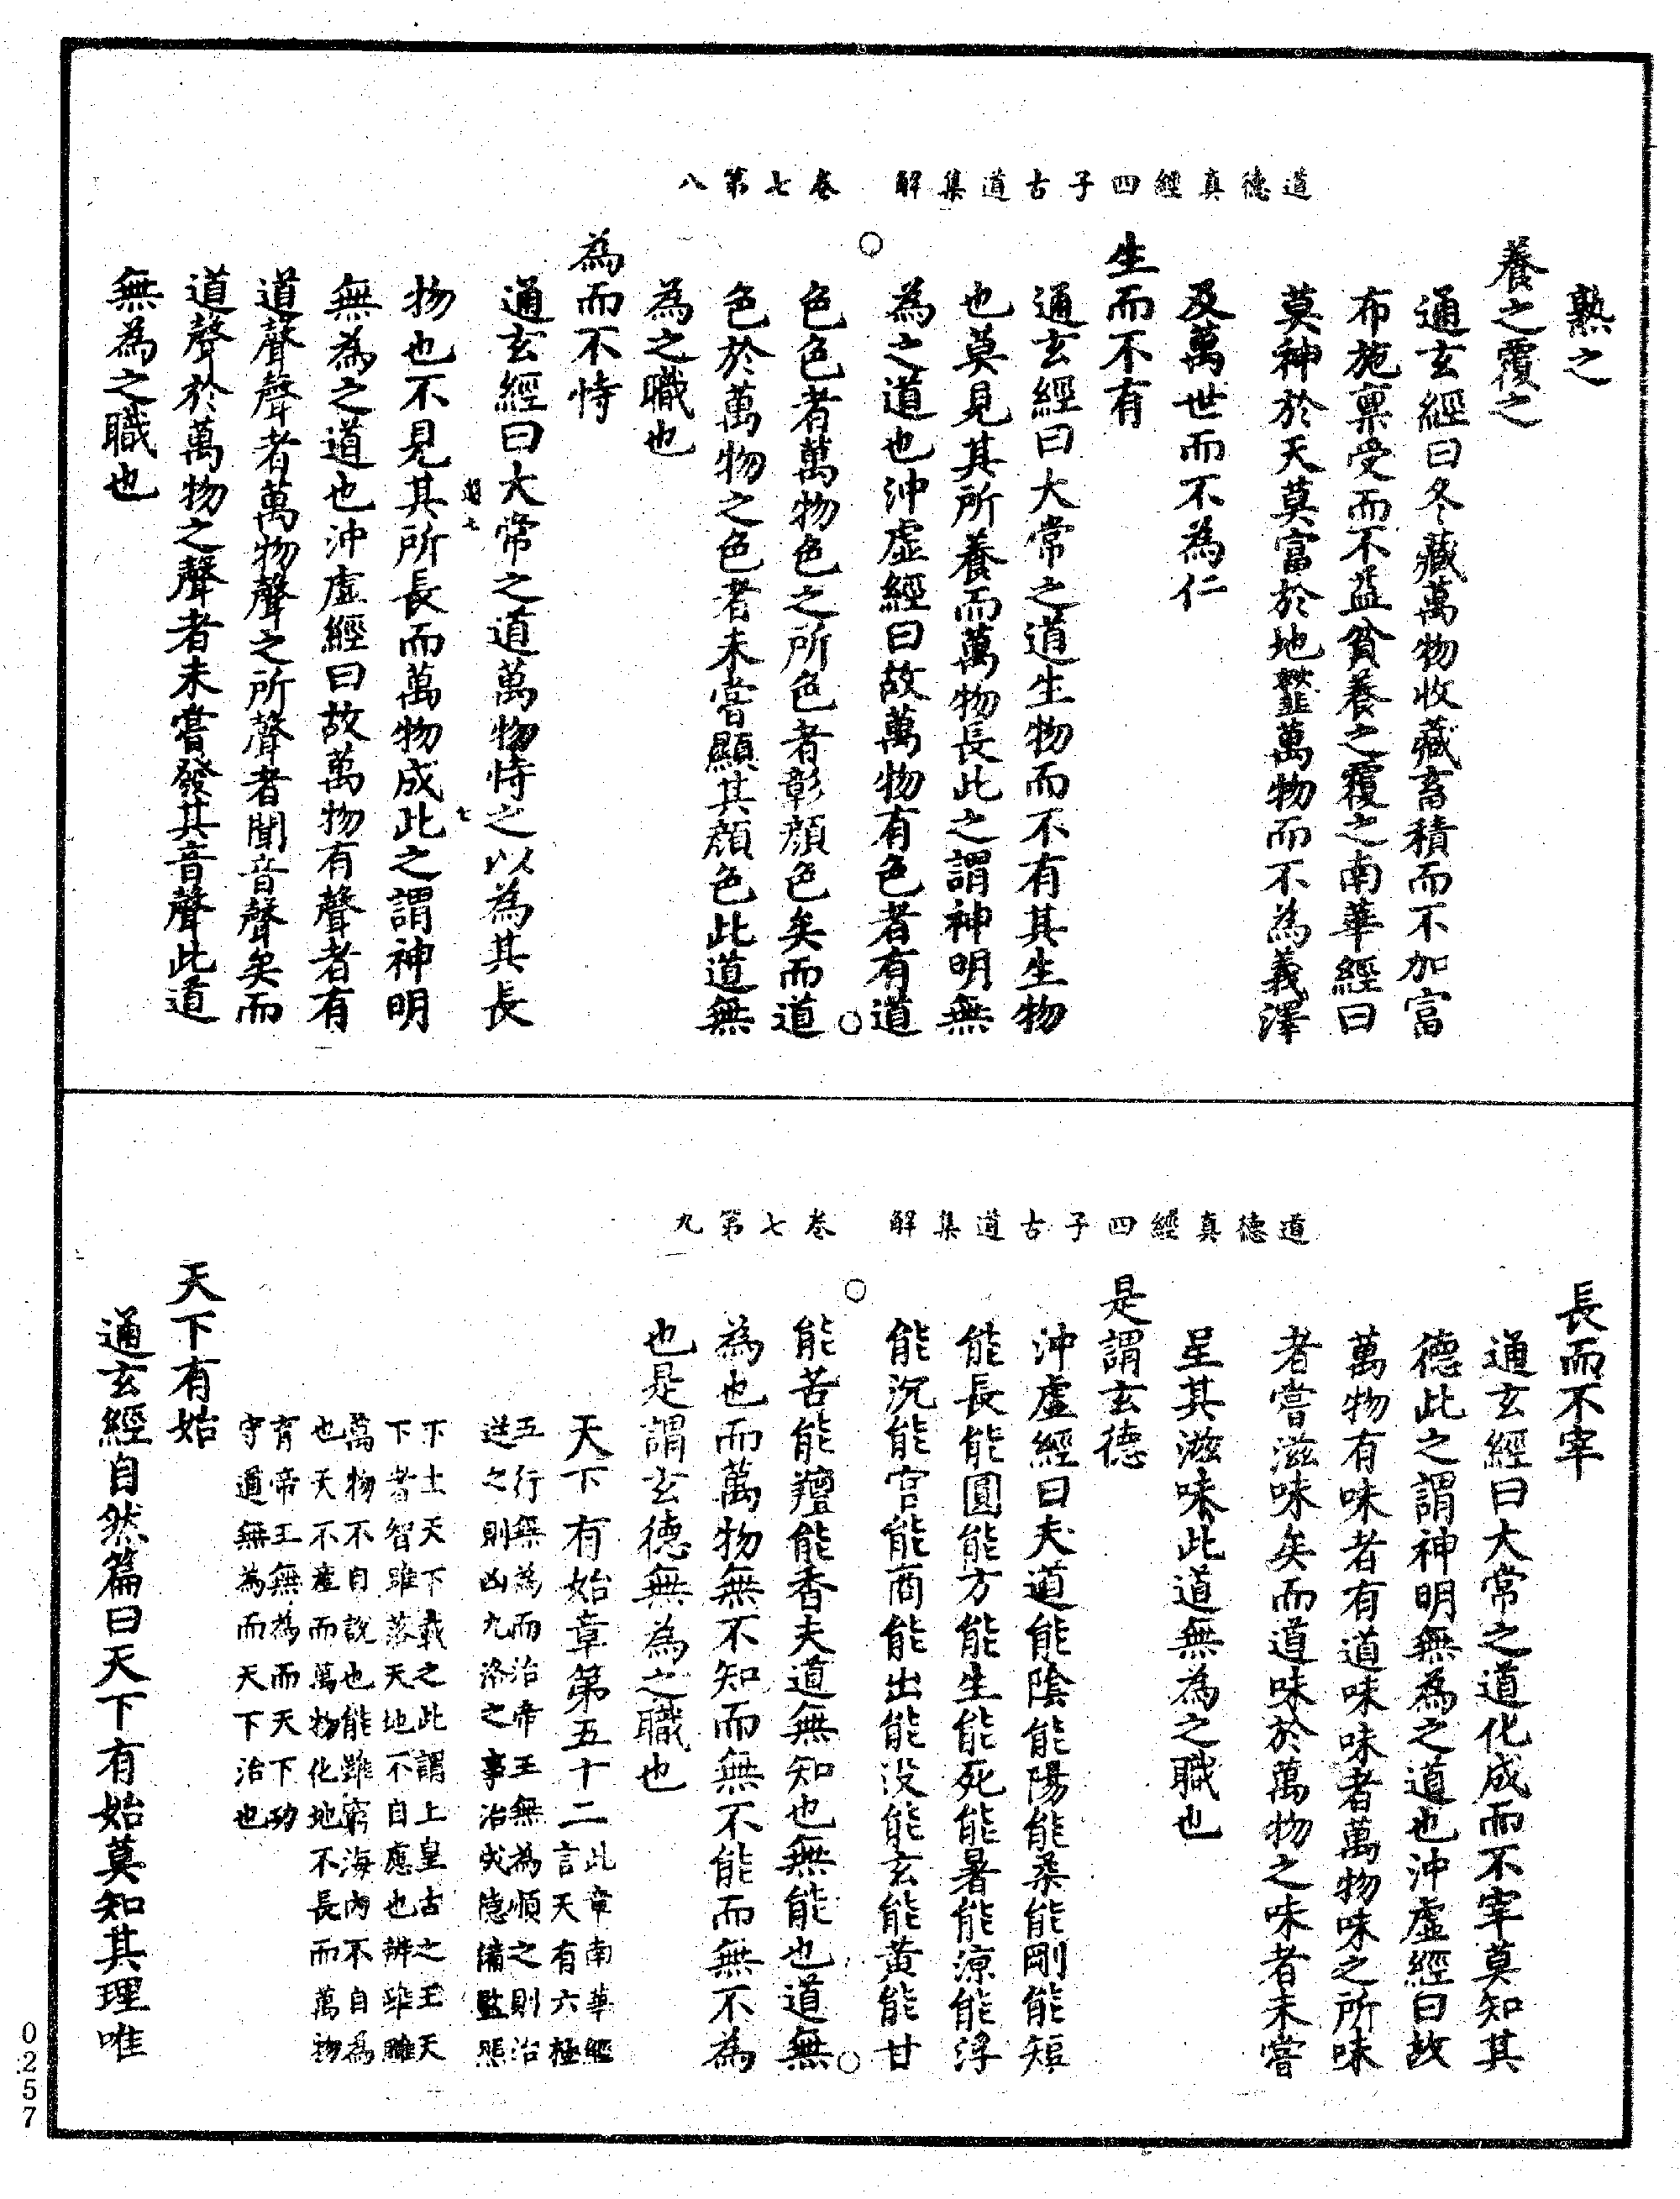 道德真經四子古道集解　卷七第八
熟之
養之覆之
通玄經曰冬藏萬物收藏畜積而不加富
布施稟受而不益貧養之覆之南華經曰
莫神於天莫富於地𩐎萬物而不為義澤
及萬世而不為仁
生而不有
通玄經曰大常之道生物而不有其生物
也莫見其所養而萬物長此之謂神明無
為之道也沖虛經曰故萬物有色者有道
色色者萬物色之所色者彰顏色矣而道
色於萬物之色者未嘗顯其顏色此道無
為之職也
為而不恃
通玄經曰大常之道萬物恃之以為其長
物也不見其所長而萬物成此之謂神明
無為之道也沖虛經曰故萬物有聲者有
道聲聲者萬物聲之所聲者聞音聲矣而
道聲於萬物之聲者未嘗發其音聲此道
無為之職也
道德真經四子古道集解　卷七第九
長而不宰
通玄經曰大常之道化成而不宰莫知其
德此之謂神明無為之道也沖虛經曰故
萬物有味者有道味味者萬物味之所味
者嘗滋味矣而道味於萬物之味者未嘗
呈其滋味此道無為之職也
是謂玄德
沖虛經曰夫道能陰能陽能柔能剛能短
能長能圓能方能生能死能暑能涼能浮
能沉能宮能商能出能沒能玄能黃能甘
能苦能羶能香夫道無知也無能也道無
為也而萬物無不知而無不能而無不為
也是謂玄德無為之職也
天下有始章第五十二此章南華經言天有六極
五行無為而治帝王無為順之則治
逆之則凶九洛之事治成德備監照
下土天下戴之此謂上皇古之王天
下者智雖落天地不自慮也辨雖雕
萬物不自說也能雖窮海內不自為
也天不產而萬物化地不長而萬物
育帝王無為而天下功
守道無為而天下治也
天下有始
通玄經自然篇曰天下有始莫知其理唯
0257